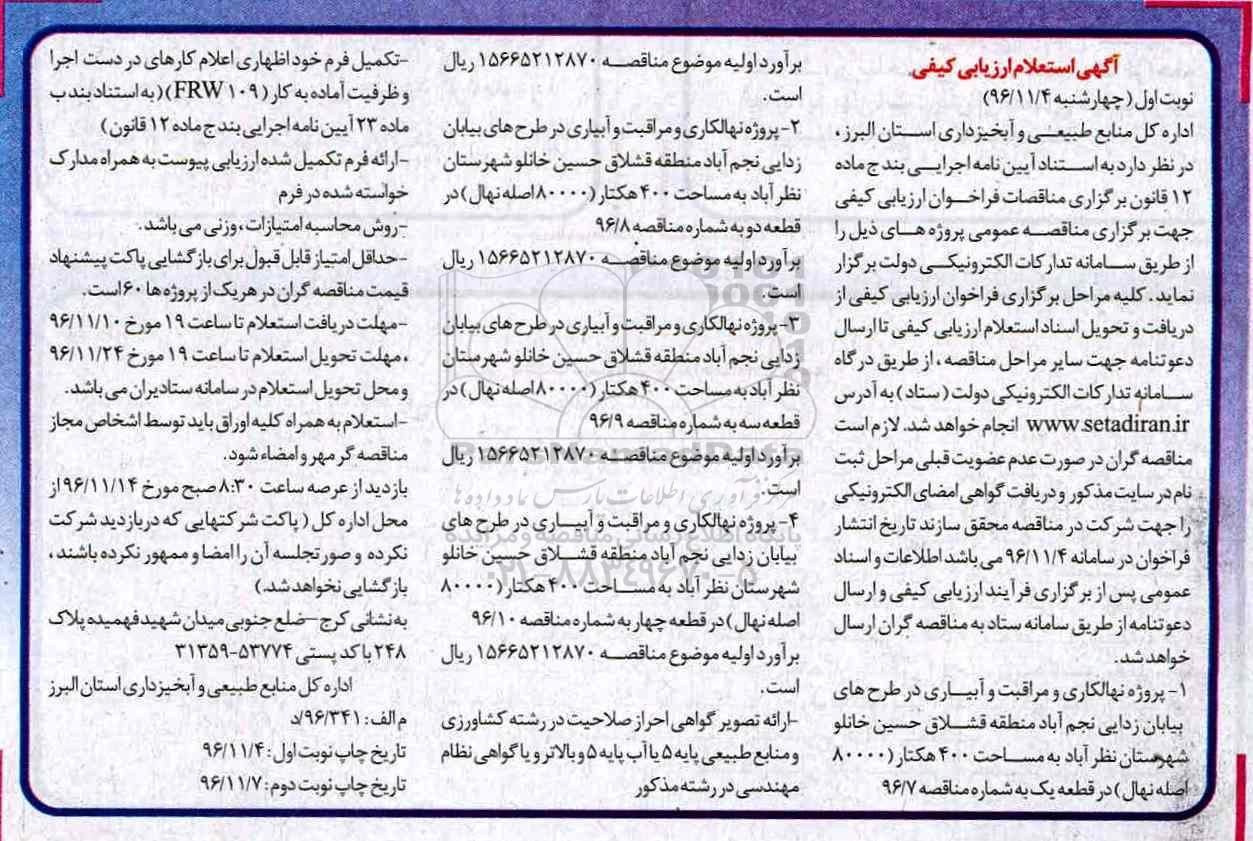 آگهی استعلام ارزیابی کیفی
نوبت اول (چهارشنبه ۹۶/۱۱/۴)
اداره کل منابع طبیعــی و آبخیزداری استــان البرز ،
در نظر دارد به استــناد آیین نامه اجرایــی بند ج ماده
۱۲ قانون برگزاری مناقصات فراخــوان ارزیابی کیفی
جهت برگزاری مناقصــه عمومی پروژه هــای ذیل را
از طریق ســامانه تدارکات الکترونیکــی دولت برگزار
نماید . کلیه مراحل برگزاری فراخوان ارزیابی کیفی از
دریافت و تحویل اسناد استعلام ارزیابی کیفی تا ارسال
دعوتنامه جهت سایر مراحل مناقصه ، از طریق درگاه
ســامانه تدارکات الکترونیکی دولت ( ستاد ) به آدرس
www.setadiran.ir انجام خواهد شد. لازم است
مناقصه گران در صورت عدم عضویت قبلی مراحل ثبت
نام در سایت مذکور و دریافت گواهی امضای الکترونیکی
را جهت شرکت در مناقصه محقق سازند تاریخ انتشار
فراخوان در سامانه ۹۶/۱۱/۴ می باشد اطلاعات و اسناد
عمومی پس از برگزاری فرآیند ارزیابی کیفی و ارسال
دعوتنامه از طریق سامانه ستاد به مناقصه گران ارسال
خواهد شد.
۱- پروژه نهالکاری و مراقبت و آبیــاری در طرح های
بیابان زدایی نجم آباد منطقه قشــلاق حسین خانلو
شهرستان نظر آباد به مســاحت ۴۰۰ هکتار (۸۰۰۰۰
اصله نهال ) در قطعه یک به شماره مناقصه ۹۶/۷
برآورد اولیه موضوع مناقصــه ۱۵۶۶۵۲۱۲۸۷۰ ریال
است.
۲- پروژه نهالکاری و مراقبت و آبیاری در طرح های بیابان
زدایی نجم آباد منطقه قشلاق حسین خانلو شهرستان
نظر آباد به مساحت ۴۰۰ هکتار (۸۰۰۰۰ اصله نهال ) در
قطعه دو به شماره مناقصه ۹۶/۸
برآورد اولیه موضوع مناقصــه ۱۵۶۶۵۲۱۲۸۷۰ ریال
است.
۳- پروژه نهالکاری و مراقبت و آبیاری در طرح های بیابان
زدایی نجم آباد منطقه قشلاق حسین خانلو شهرستان
نظر آباد به مساحت ۴۰۰ هکتار (۸۰۰۰۰ اصله نهال ) در
قطعه سه به شماره مناقصه ۹۶/۹
برآورد اولیه موضوع مناقصــه ۱۵۶۶۵۲۱۲۸۷۰ ریال
است.
۴- پروژه نهالکاری و مراقبت و آبیــاری در طرح های
بیابان زدایی نجم آباد منطقه قشــلاق حسین خانلو
شهرستان نظر آباد به مســاحت ۴۰۰ هکتار (۸۰۰۰۰
اصله نهال ) در قطعه چهار به شماره مناقصه ۹۶/۱۰
برآورد اولیه موضوع مناقصــه ۱۵۶۶۵۲۱۲۸۷۰ ریال
است.
-ارائه تصویر گواهی احراز صلاحیت در رشته کشاورزی
و منابع طبیعی پایه ۵ یا آب پایه ۵ و بالاتر و یا گواهی نظام
مهندسی در رشته مذکور
-تکمیل فرم خود اظهاری اعلام کارهای در دست اجرا
و ظرفیت آماده به کار (FRW ۱۰۹) (به استناد بند ب
ماده ۲۳ آیین نامه اجرایی بند ج ماده ۱۲ قانون)
-ارائه فرم تکمیل شده ارزیابی پیوست به همراه مدارک
خواسته شده در فرم
-روش محاسبه امتیازات ، وزنی می باشد.
-حداقل امتیاز قابل قبول برای بازگشایی پاکت پیشنهاد
قیمت مناقصه گران در هریک از پروژه ها ۶۰ است.
-مهلت دریافت استعلام تا ساعت ۱۹ مورخ ۹۶/۱۱/۱۰
، مهلت تحویل استعلام تا ساعت ۱۹ مورخ ۹۶/۱۱/۲۴
و محل تحویل استعلام در سامانه ستادیران می باشد.
-استعلام به همراه کلیه اوراق باید توسط اشخاص مجاز
مناقصه گر مهر و امضاء شود.
بازدید از عرصه ساعت ۸:۳۰ صبح مورخ ۹۶/۱۱/۱۴ از
محل اداره کل ( پاکت شرکتهایی که دربازدید شرکت
نکرده و صورتجلسه آن را امضا و ممهور نکرده باشند ،
بازگشایی نخواهد شد.)
به نشانی کرج – ضلع جنوبی میدان شهید فهمیده پلاک
۲۴۸ با کد پستی ۵۳۷۷۴-۳۱۳۵۹
اداره کل منابع طبیعی و آبخیزداری استان البرز
م الف: ۹۶/۳۴۱/د
تاریخ چاپ نوبت اول: ۹۶/۱۱/۴
تاریخ چاپ نوبت دوم: ۹۶/۱۱/۷
ParsNamadData
مرکز فرآوری اطلاعات پارس نماد داده ها
پایگاه اطلاع رسانی مناقصه و مزایده
۰۲۱-۸۸۳۴۹۶۷۰-۵